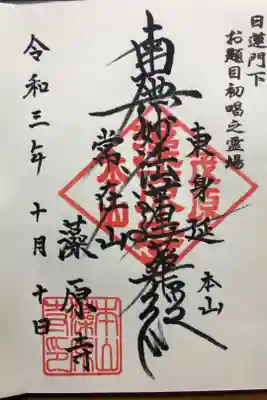 日蓮門下
お題目初唱之霊場
東身延
本山
南無妙法蓮華経
常在山
藻原寺
令和三年
十月十日